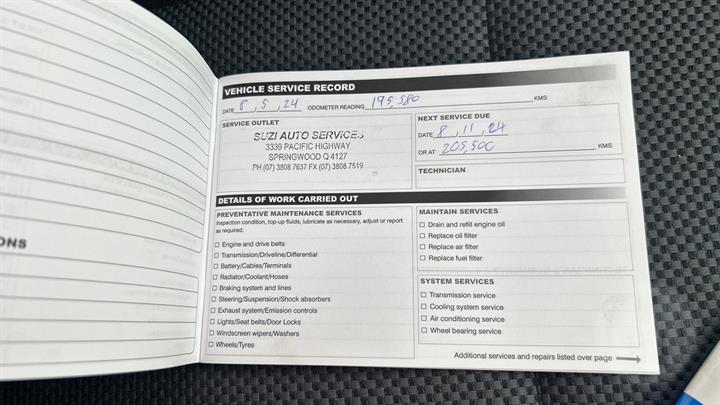 ONS
VEHICLE SERVICE RECORD
DATE 8, 5, 24 ODOMETER READING 195,580 KMS
SERVICE OUTLET
SUZI AUTO SERVICES
3339 PACIFIC HIGHWAY
SPRINGWOOD Q 4127
PH (07) 3808 7637 FX (07) 3808 7519
NEXT SERVICE DUE
DATE 8, 11, 24
OR AT 205,500 KMS
TECHNICIAN
DETAILS OF WORK CARRIED OUT
PREVENTATIVE MAINTENANCE SERVICES
Inspection condition, top-up fluids, lubricate as necessary, adjust or report
as required.
☐ Engine and drive belts
☐ Transmission/Driveline/Differential
☐ Battery/Cables/Terminals
☐ Radiator/Coolant/Hoses
☐ Braking system and lines
☐ Steering/Suspension/Shock absorbers
☐ Exhaust system/Emission controls
☐ Lights/Seat belts/Door Locks
☐ Windscreen wipers/Washers
☐ Wheels/Tyres
MAINTAIN SERVICES
☐ Drain and refill engine oil
☐ Replace oil filter
☐ Replace air filter
☐ Replace fuel filter
SYSTEM SERVICES
☐ Transmission service
☐ Cooling system service
☐ Air conditioning service
☐ Wheel bearing service
Additional services and repairs listed over page